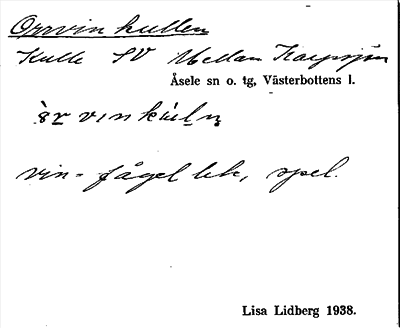 Orrvinkullen
Kulle SV Mellan Karpsjön
Åsele sn o. tg, Västerbottens l.
vin- fågellek, spel.
Lisa Lidberg 1938.